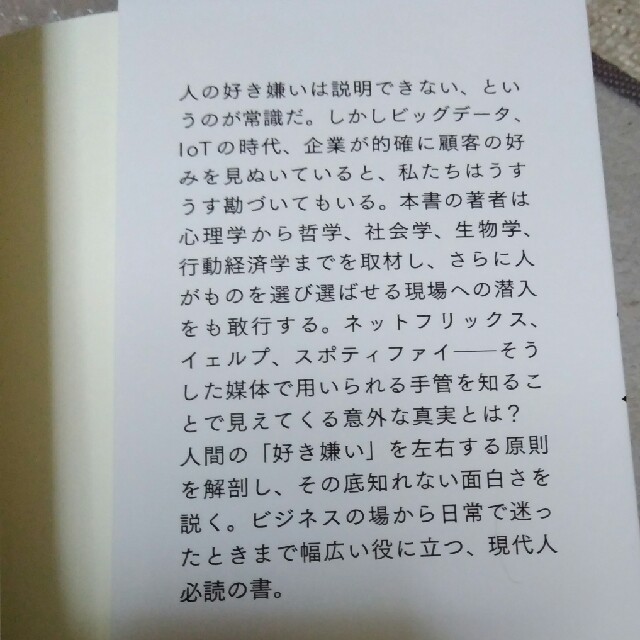 人の好き嫌いは説明できない、とい
うのが常識だ。しかしビッグデータ、
IoTの時代、企業が的確に顧客の好
みを見ぬいていると、私たちはうす
うす勘づいてもいる。本書の著者は
心理学から哲学、社会学、生物学、
行動経済学までを取材し、さらに人
がものを選び選ばせる現場への潜入
をも敢行する。ネットフリックス、
イェルプ、スポティファイ――そう
した媒体で用いられる手管を知るこ
とで見えてくる意外な真実とは?
人間の「好き嫌い」を左右する原則
を解剖し、その底知れない面白さを
説く。ビジネスの場から日常で迷っ
たときまで幅広い役に立つ、現代人
必読の書。